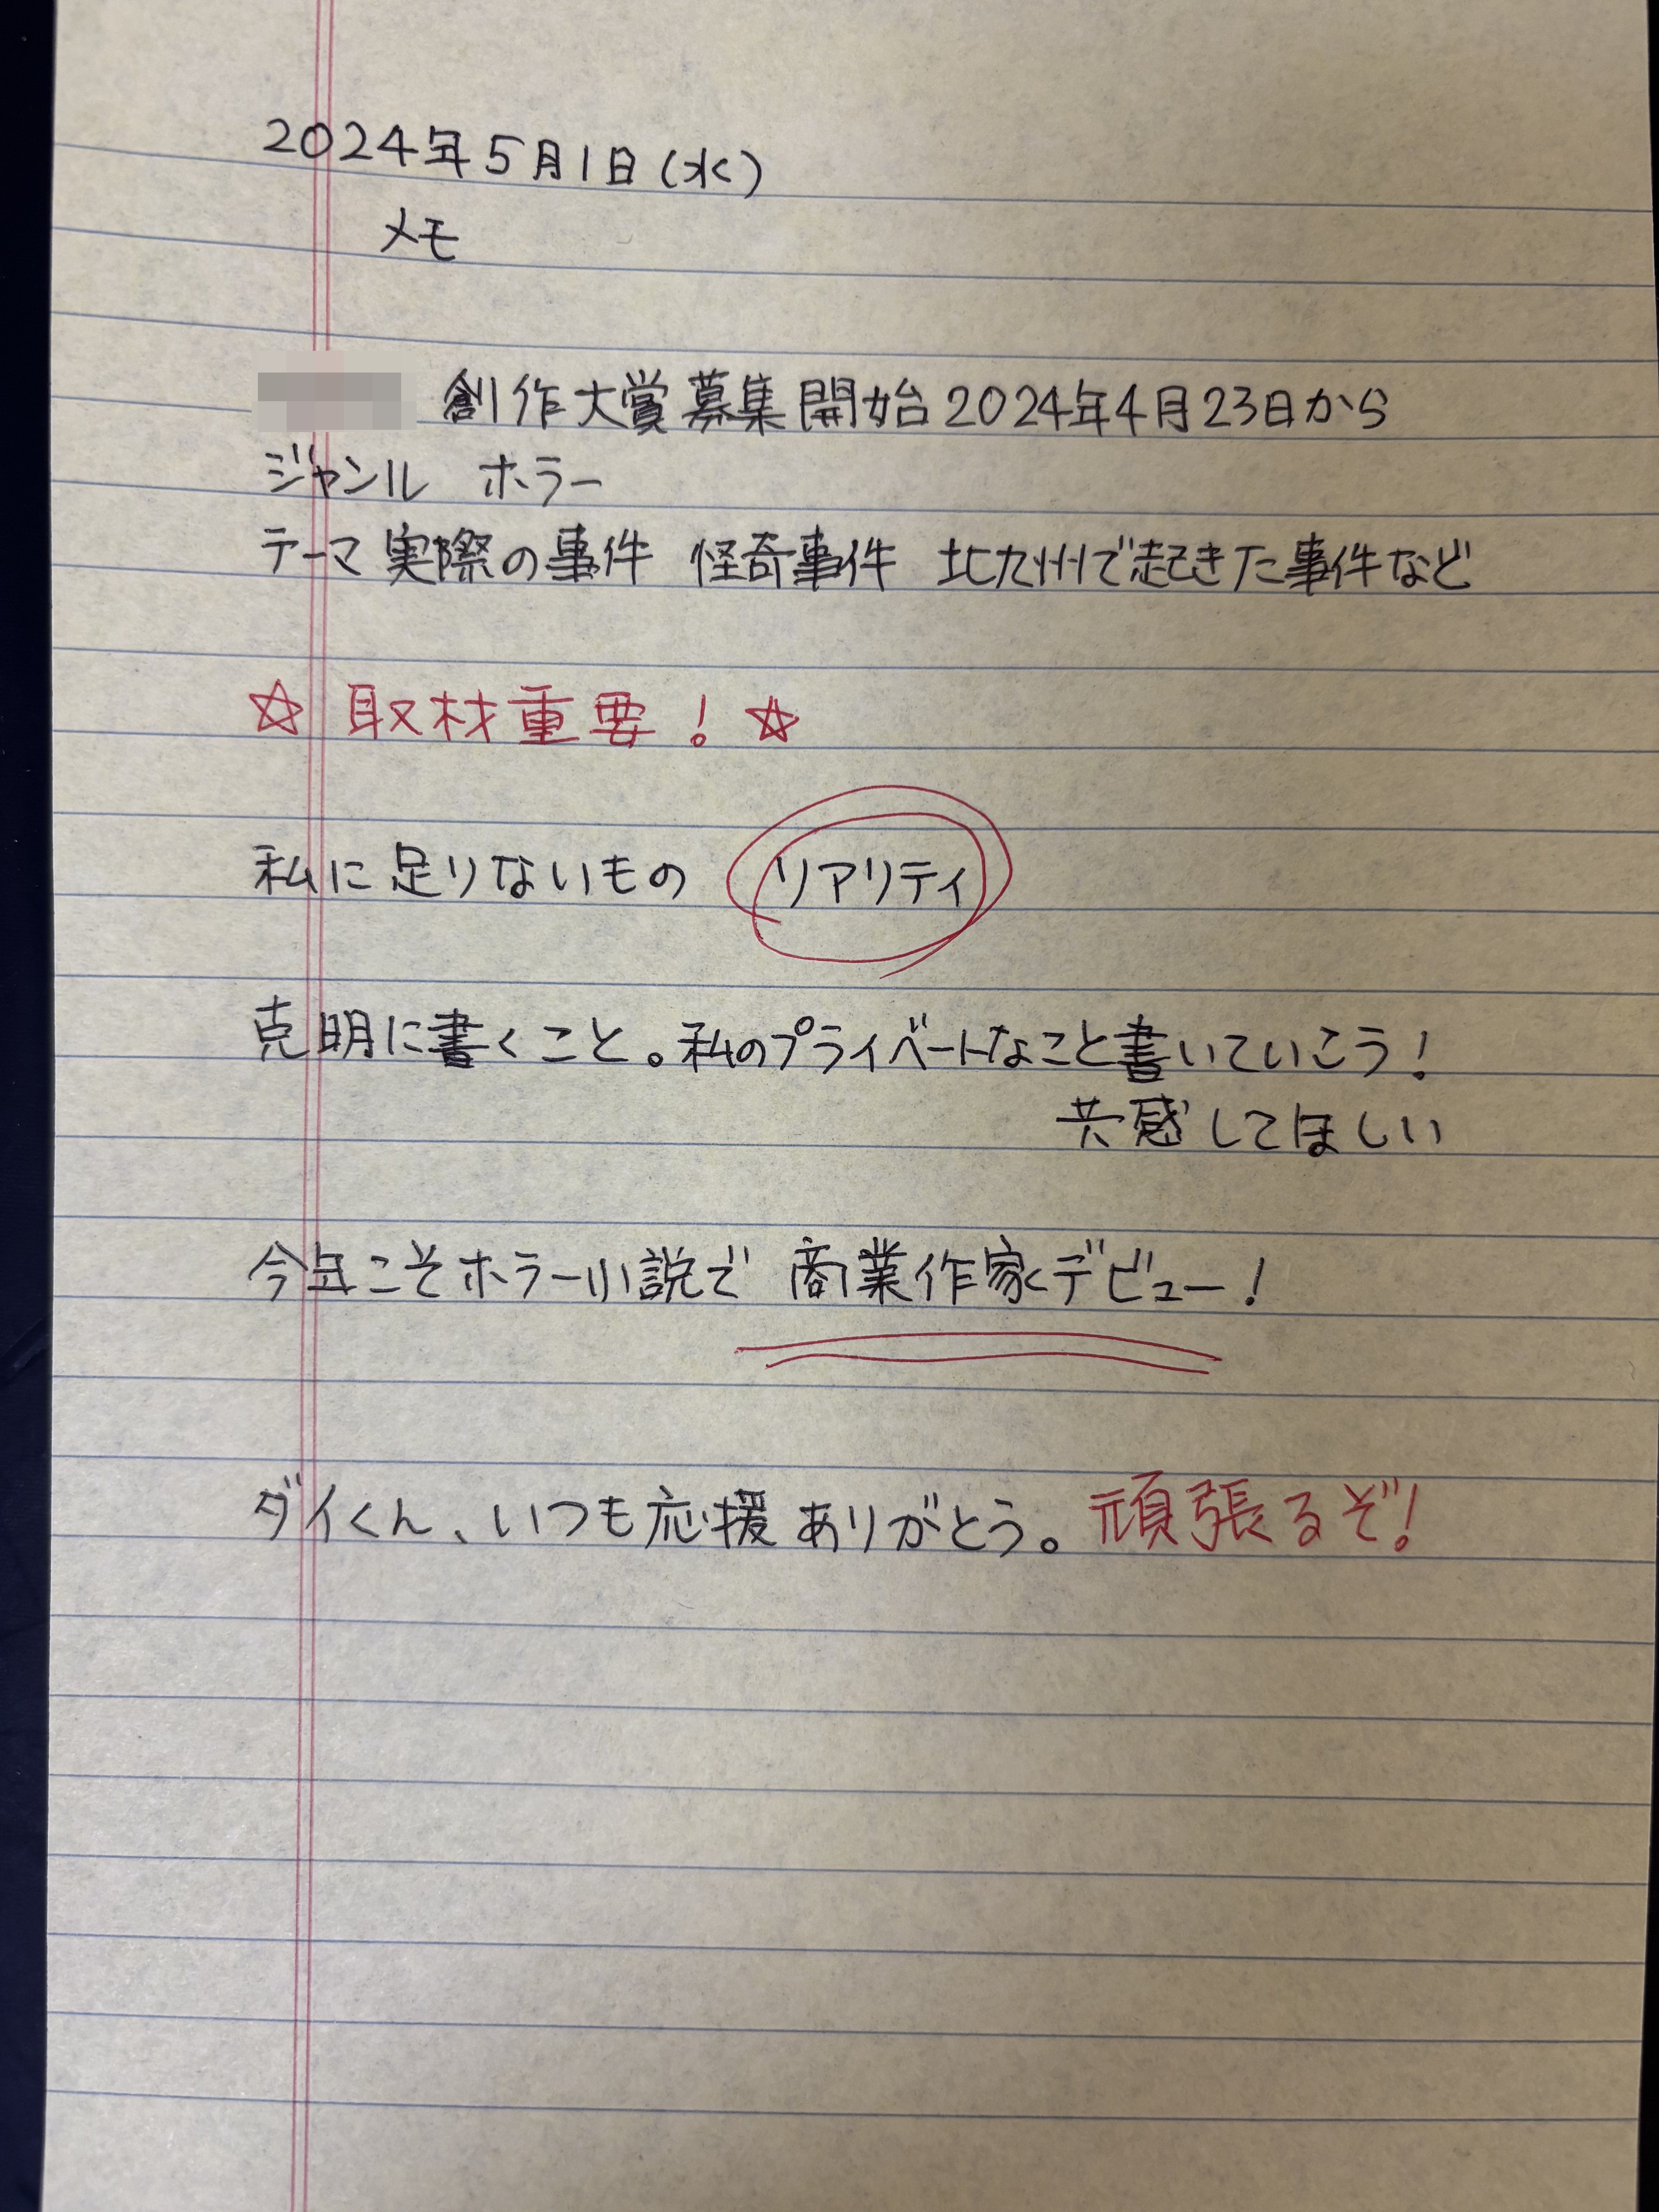 2024年5月1日(水)
メモ
創作大賞募集開始2024年4月23日から
ジャンル ホラー
テーマ 実際の事件 怪奇事件 北九州で起きた事件など
☆取材重要！☆
私に足りないもの リアリティ
克明に書くこと。私のプライベートなこと書いていこう！
共感してほしい
今年こそホラー小説で 商業作家デビュー！
ダイくん、いつも応援ありがとう。頑張るぞ！